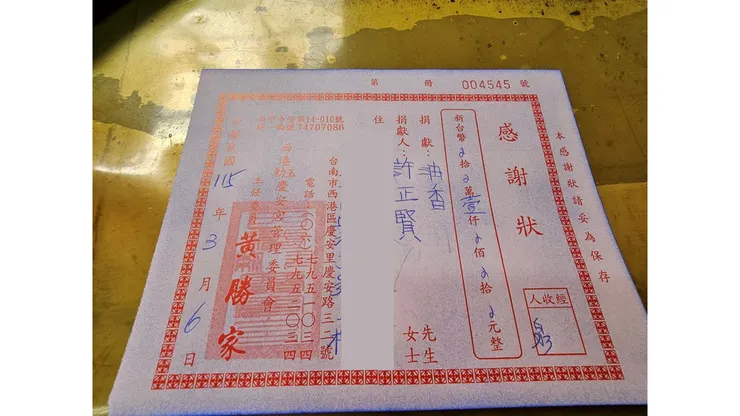 第 冊 004545 號
本感謝狀請妥為保存
感謝狀
新台幣 拾 萬壹仟 佰 拾 元整
經收人
捐獻:油香
捐獻人:許正賢 先生 女士
住
台南市西港區慶安里慶安路三二號
電話:(〇六)七九五二〇三四
西港玉勅慶安宮管理委員會
主任委員 黃勝家
第14-010號
74707086
中華民國115年3月6日